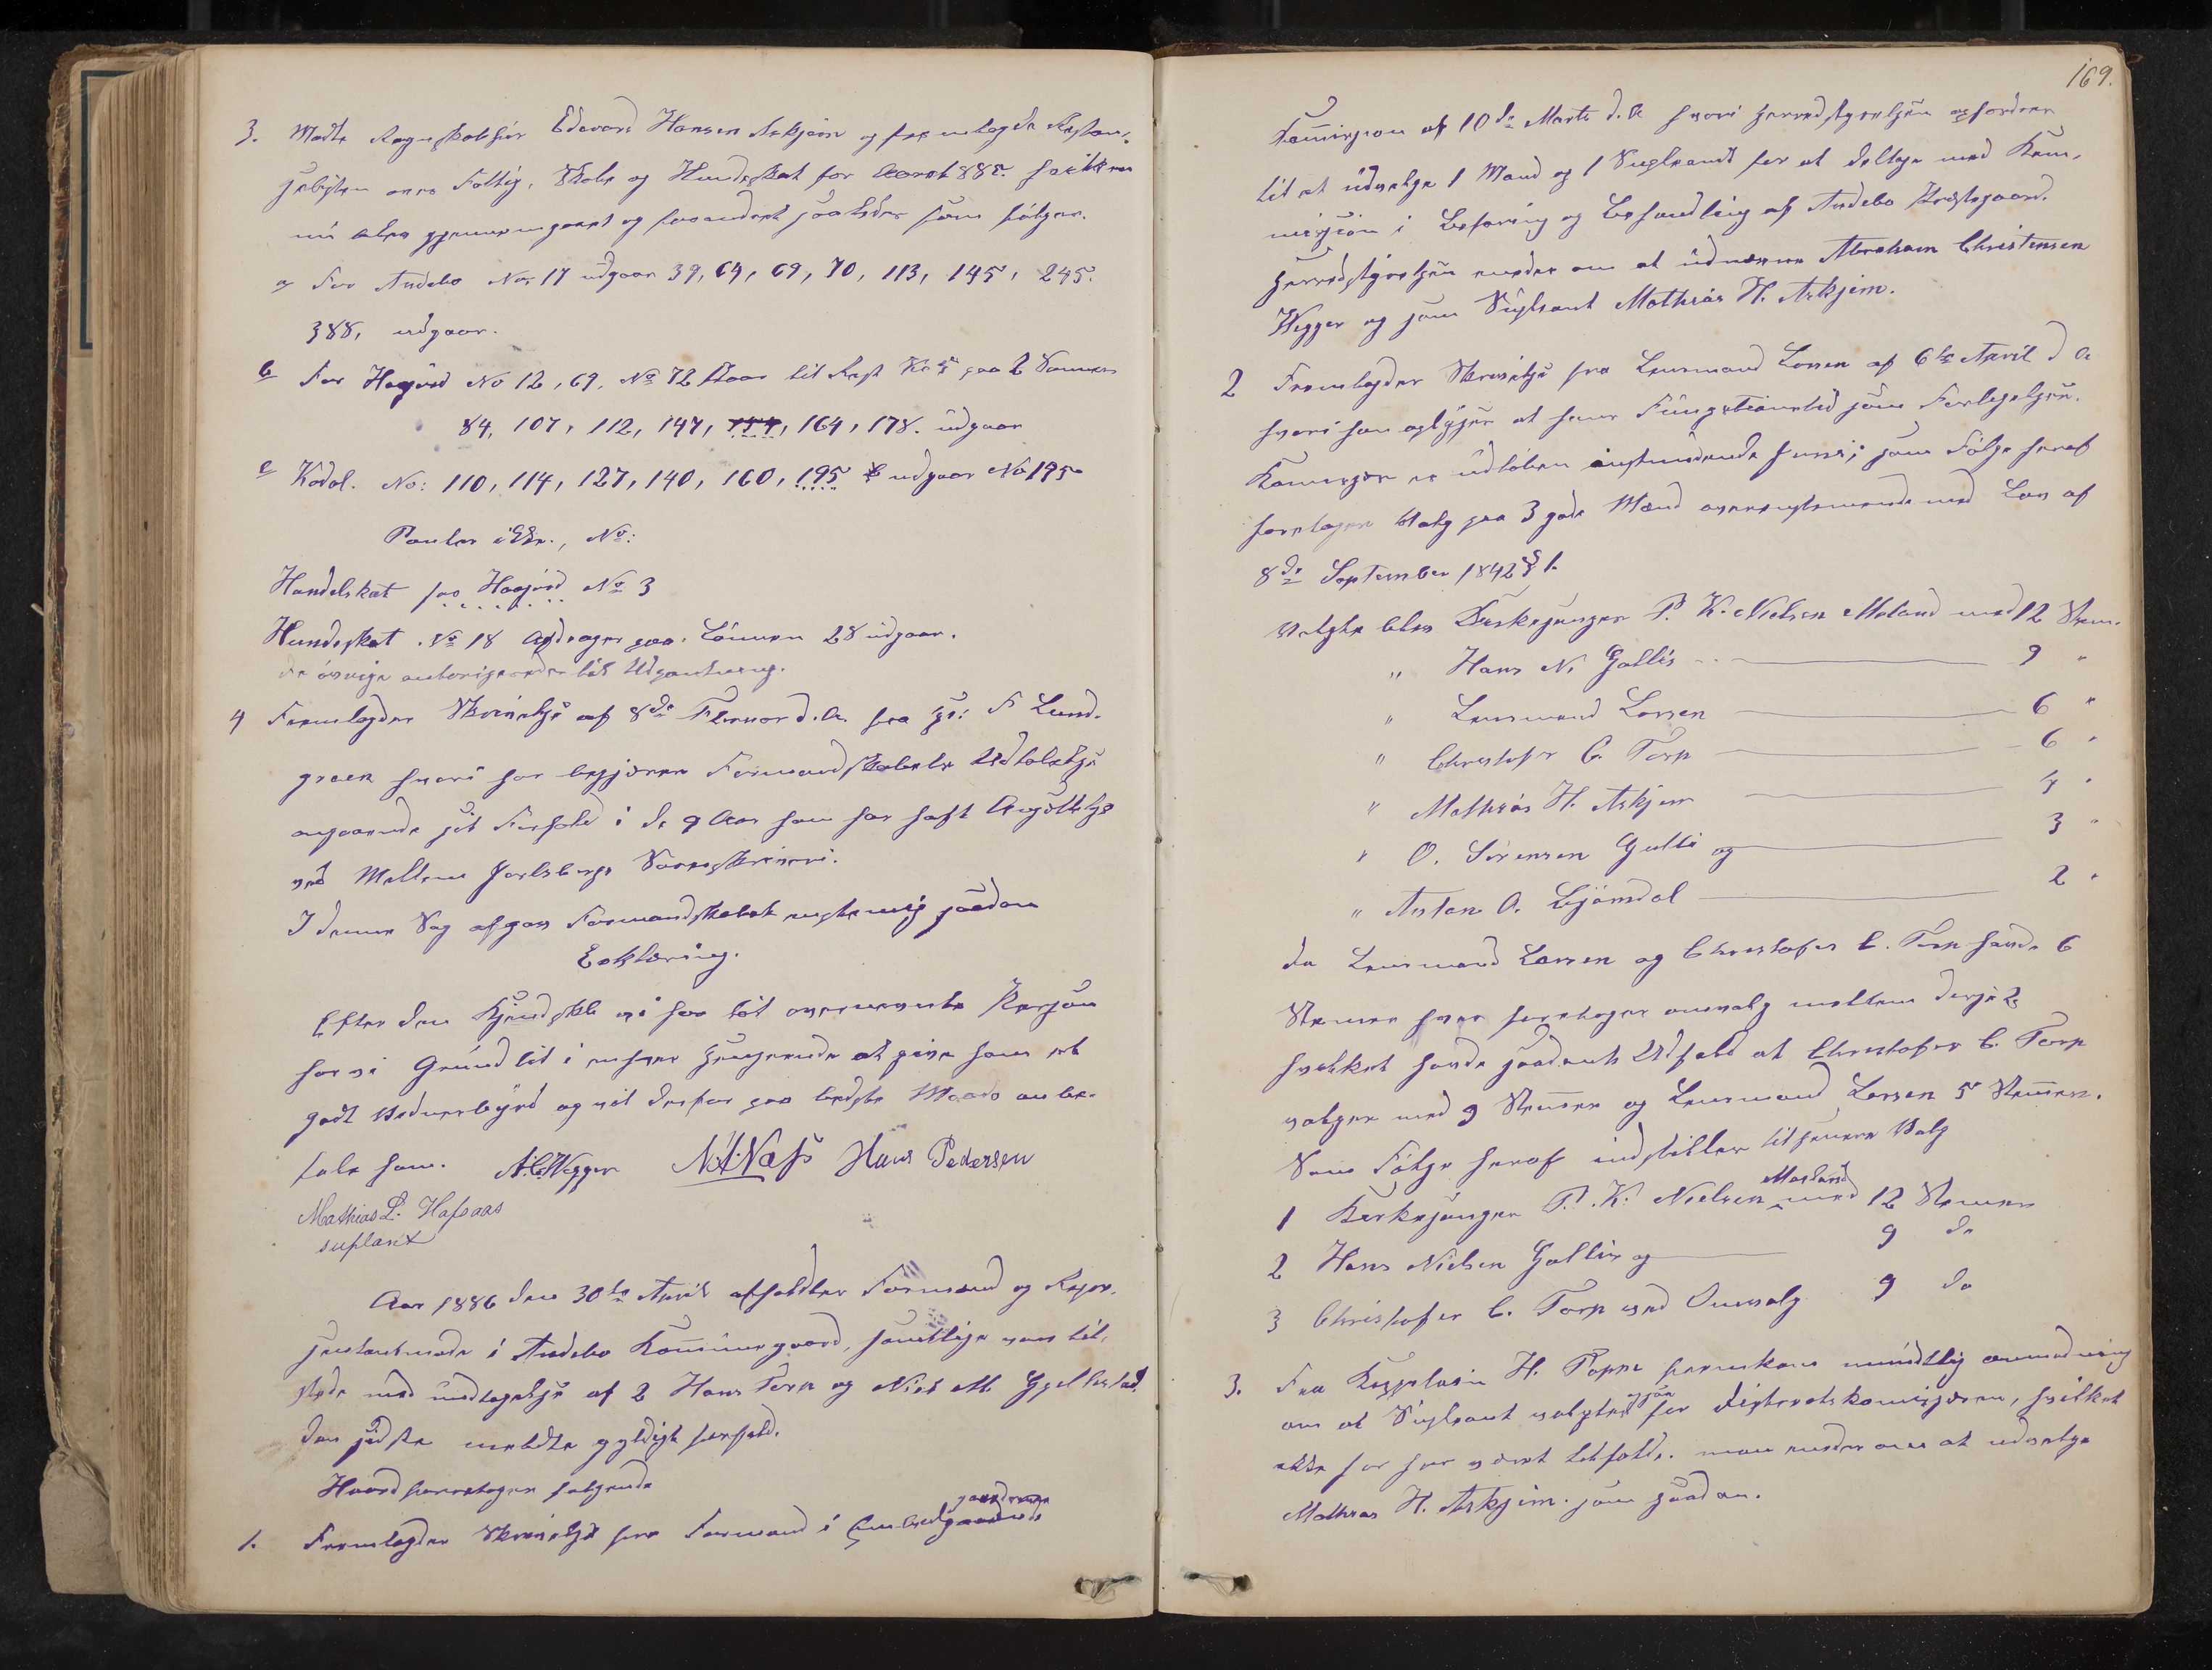 3. Mødte Regnskabsfør Edevard Hansen Askjem og fremlagde Restan-
selisten over Fattig, Skole og Hundeskat for Aaret 1885. hvilken
nu blev gjennemgaaet og forandret saaledes som følger.
a For Andebo No 17 udgaar 39, 64, 69, 70, 113, 145, 245.
388, udgaar.
b For Høyjord No 12, 69, No 72 staar til Rest Kr 5 paa 2 Sommer
84, 107, 112, 147, 154, 164, 178. udgaar
c Kodal. No: 110, 114, 127, 140, 160, 195 udgaar No 195
Panter ikke., No:
Hundeskat fra Høyjord No 3
Hundeskat. No 18 Andrages paa Lønnen 28 udgaar.
de øvrige autoriseredes til Udpantning.
4 Fremlagdes Skrivelse af 8de Februar d.A. fra Hr: F Lund-
green hvori han begjærer Formandskabets Udtalelse
angaaende sit Forhold i de 9 Aar han har havt Ansættelse
ved Mellem Jarlsbergs Sorenskriveri.
I denne Sag afgav Formandskabet enstemmig saadan
Erklæring.
Efter den Kjendskab vi har til overnævnte Person
har vi Grund til i enhver Henseende at give ham et
godt Vidnesbyrd og vil derfor paa bedste Maade anbe-
fale ham. A.C. Vegger N.A. Næss Hans Pedersen
Mathias L. Hafsaas
suplant
Aar 1886 den 30te April afholdtes Formand og Repræ-
sentantmøde i Andebo Kommunegaard, samtlige var til-
stede med undtagelse af 2 Hans Torp og Niels M. Gjellestad
den sidste meldte gyldigt forfald.
Hvorda foretoges følgende
1. Fremlagdes Skrivelse fra Formand i Embedsgaards
169.
Komission af 10de Marts d.A hvori Herredstyrelsen opfordres
til at udvælge 1 Mand og 1 Supleant for at deltage med Kom-
missjon i Befaring og Behandling af Andebo Præstegaard.
Herredstyrelsen enedes om at udnævne Abraham Christensen
Vegger og som Suplant Mathias H. Askjem.
2 Fremlagdes Skrivelse fra Lensmand Larsen af 6te April d A
hvori han oplyser at hans Fungtionstid som Forligelses-
Komissær er udløben anstundende Juni; som Følge heraf
foretoges Valg paa 3 gode Mænd overenstemmende med Lov af
8de September 1842 § 1.
Valgte blev Kirkesanger P. K. Nielsen Møland med 12 Stem.
" Hans N. Gallis 9 "
" Lensmand Larsen 6 "
" Christofer C. Torp 6 "
" Mathias H. Askjem 4 "
" O. Sørensen Gulli og 3 "
" Anton A. Bjørndal 2 "
da Lensmand Larsen og Christofer C. Torp havde 6
Stemmer hver foretoges omvalg mellem disse 2
hvilket havde saadant Udfald at Christofer C. Torp
valgtes med 9 Stemmer og Lensmand Larsen 5 Stemmer.
Som Følge heraf indstilles til senere Valg
1 Kirkesanger P. K. Nielsen Møland med 12 Stemmer
2 Hans Nielsen Gallis og 9 do
3 Christofer C. Torp ved Omvalg 9 do
3. Fra Kappelain H. Poppe fremkom mundtlig anmodning
om at Supleant valgtes ogsaa for Distrætskomissæren, hvilket
ikke har før været tilfælde. man enedes om at udvælge
Mathias H. Askjem som saadan.